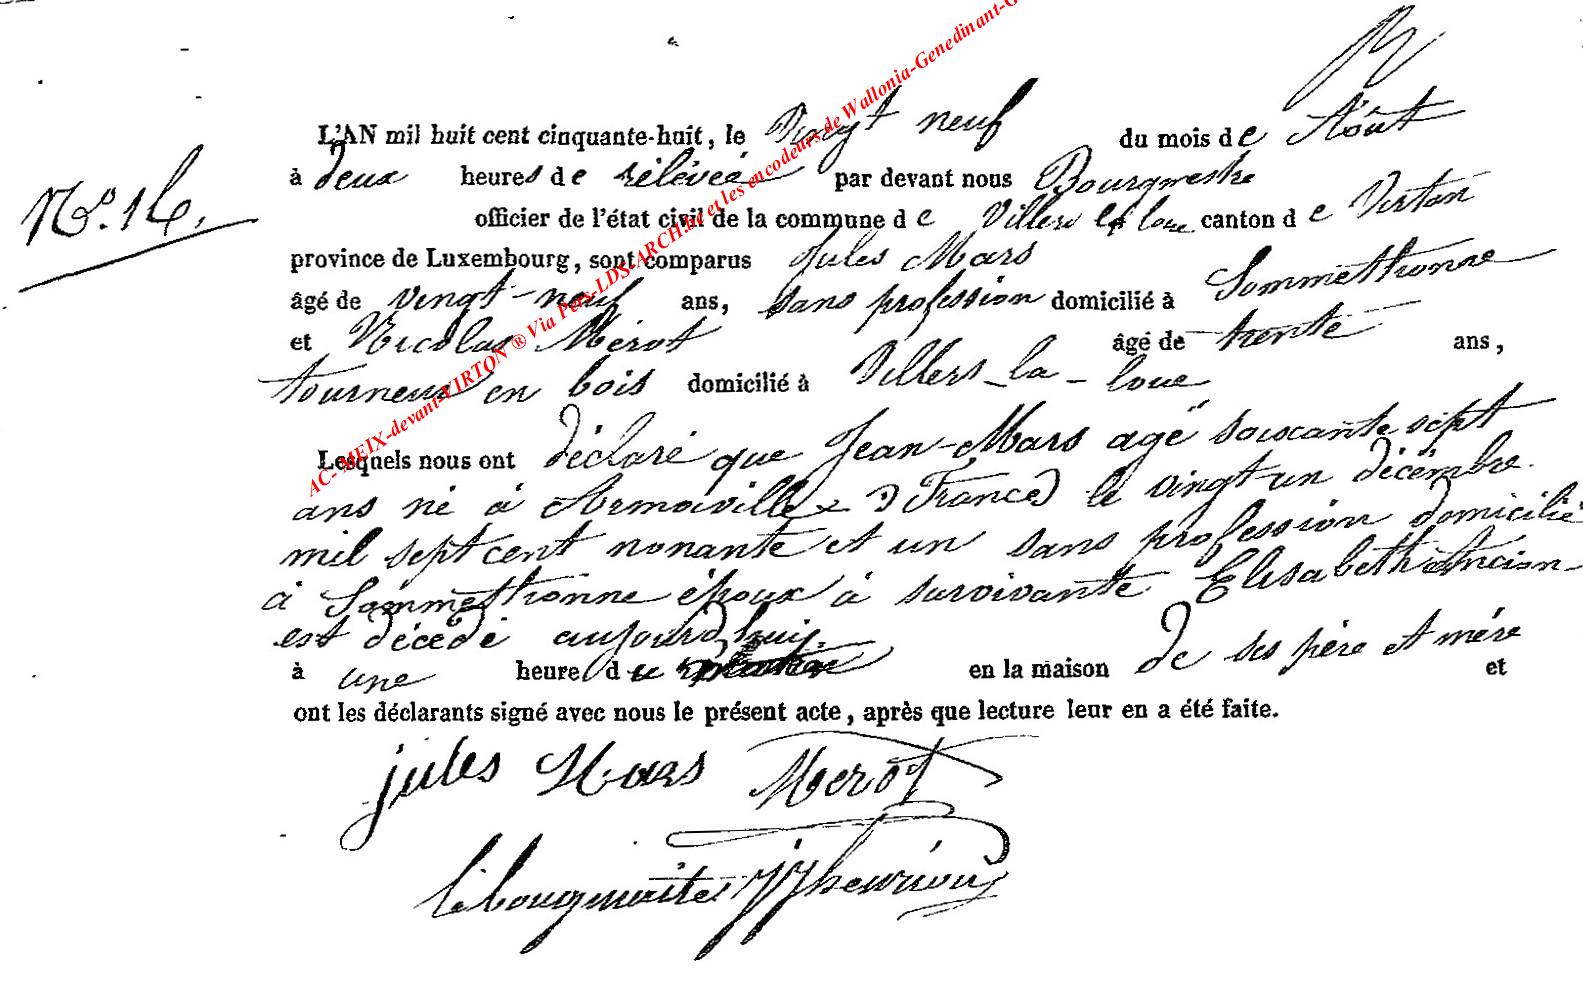 L'AN mil huit cent cinquante-huit, le Vingt neuf du mois de Août
à deux heures de rélévée par devant nous Bourgmestre
No. 16. officier de l'état civil de la commune de Villers la loue canton de Virton
province de Luxembourg, sont comparus Jules Mars
âgé de vingt-neuf ans, sans profession domicilié à Sommethonne
et Nicolas Mérot âgé de trente ans,
tourneur en bois domicilié à Villers-la-loue
Lesquels nous ont déclaré que Jean Mars agé soixante sept
ans né à (France) le vingt un décembre
mil sept cent nonante et un sans profession domicilié
à Sommethonne époux à survivante Elisabeth Ancion
est décédé aujourd'hui
à une heure du en la maison de ses père et mère et
ont les déclarants signé avec nous le présent acte, après que lecture leur en a été faite.
jules Mars Merot
le bourgmaitre
AC-MEIX-devant-VIRTON ® Via Pers-LDS-ARCH.be et les encodeurs de Wallonia-Genedinant-G